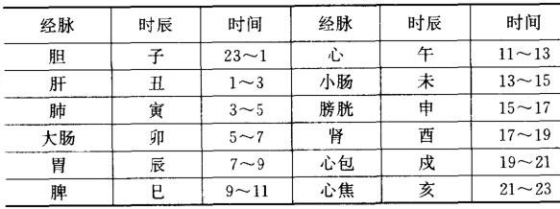 经脉 时辰 时间 经脉 时辰 时间
胆 子 23～1 心 午 11～13
肝 丑 1～3 小肠 未 13～15
肺 寅 3～5 膀胱 申 15～17
大肠 卯 5～7 肾 酉 17～19
胃 辰 7～9 心包 戌 19～21
脾 巳 9～11 心焦 亥 21～23